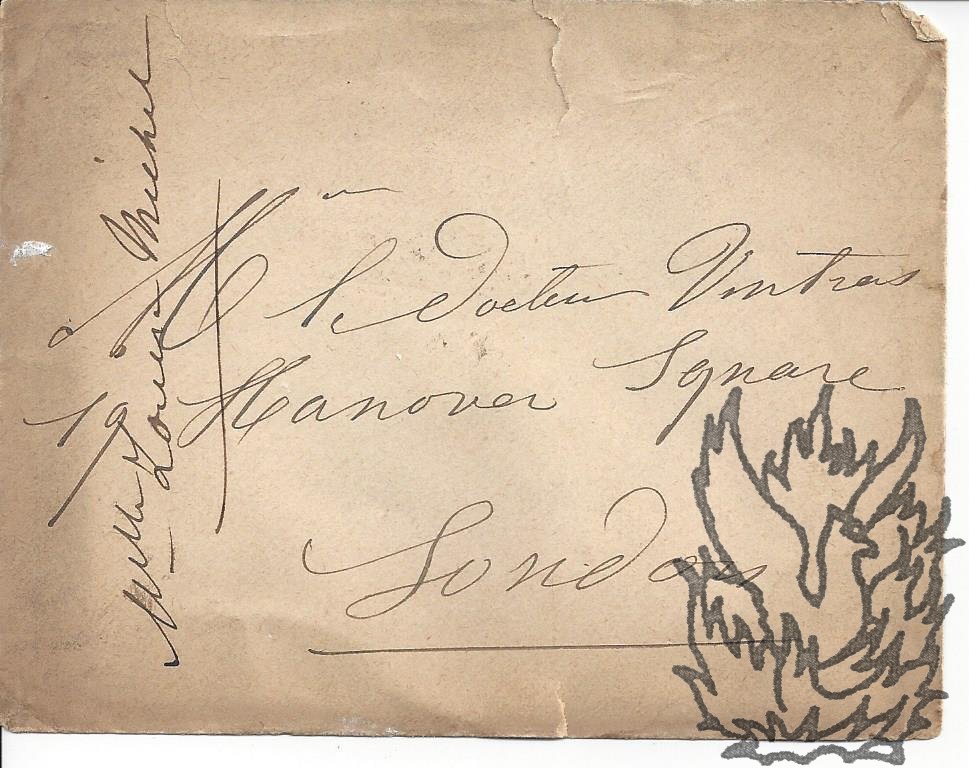 Mr le Docteur Vintras
19 Hanover Square
London
Melle Louise Michel